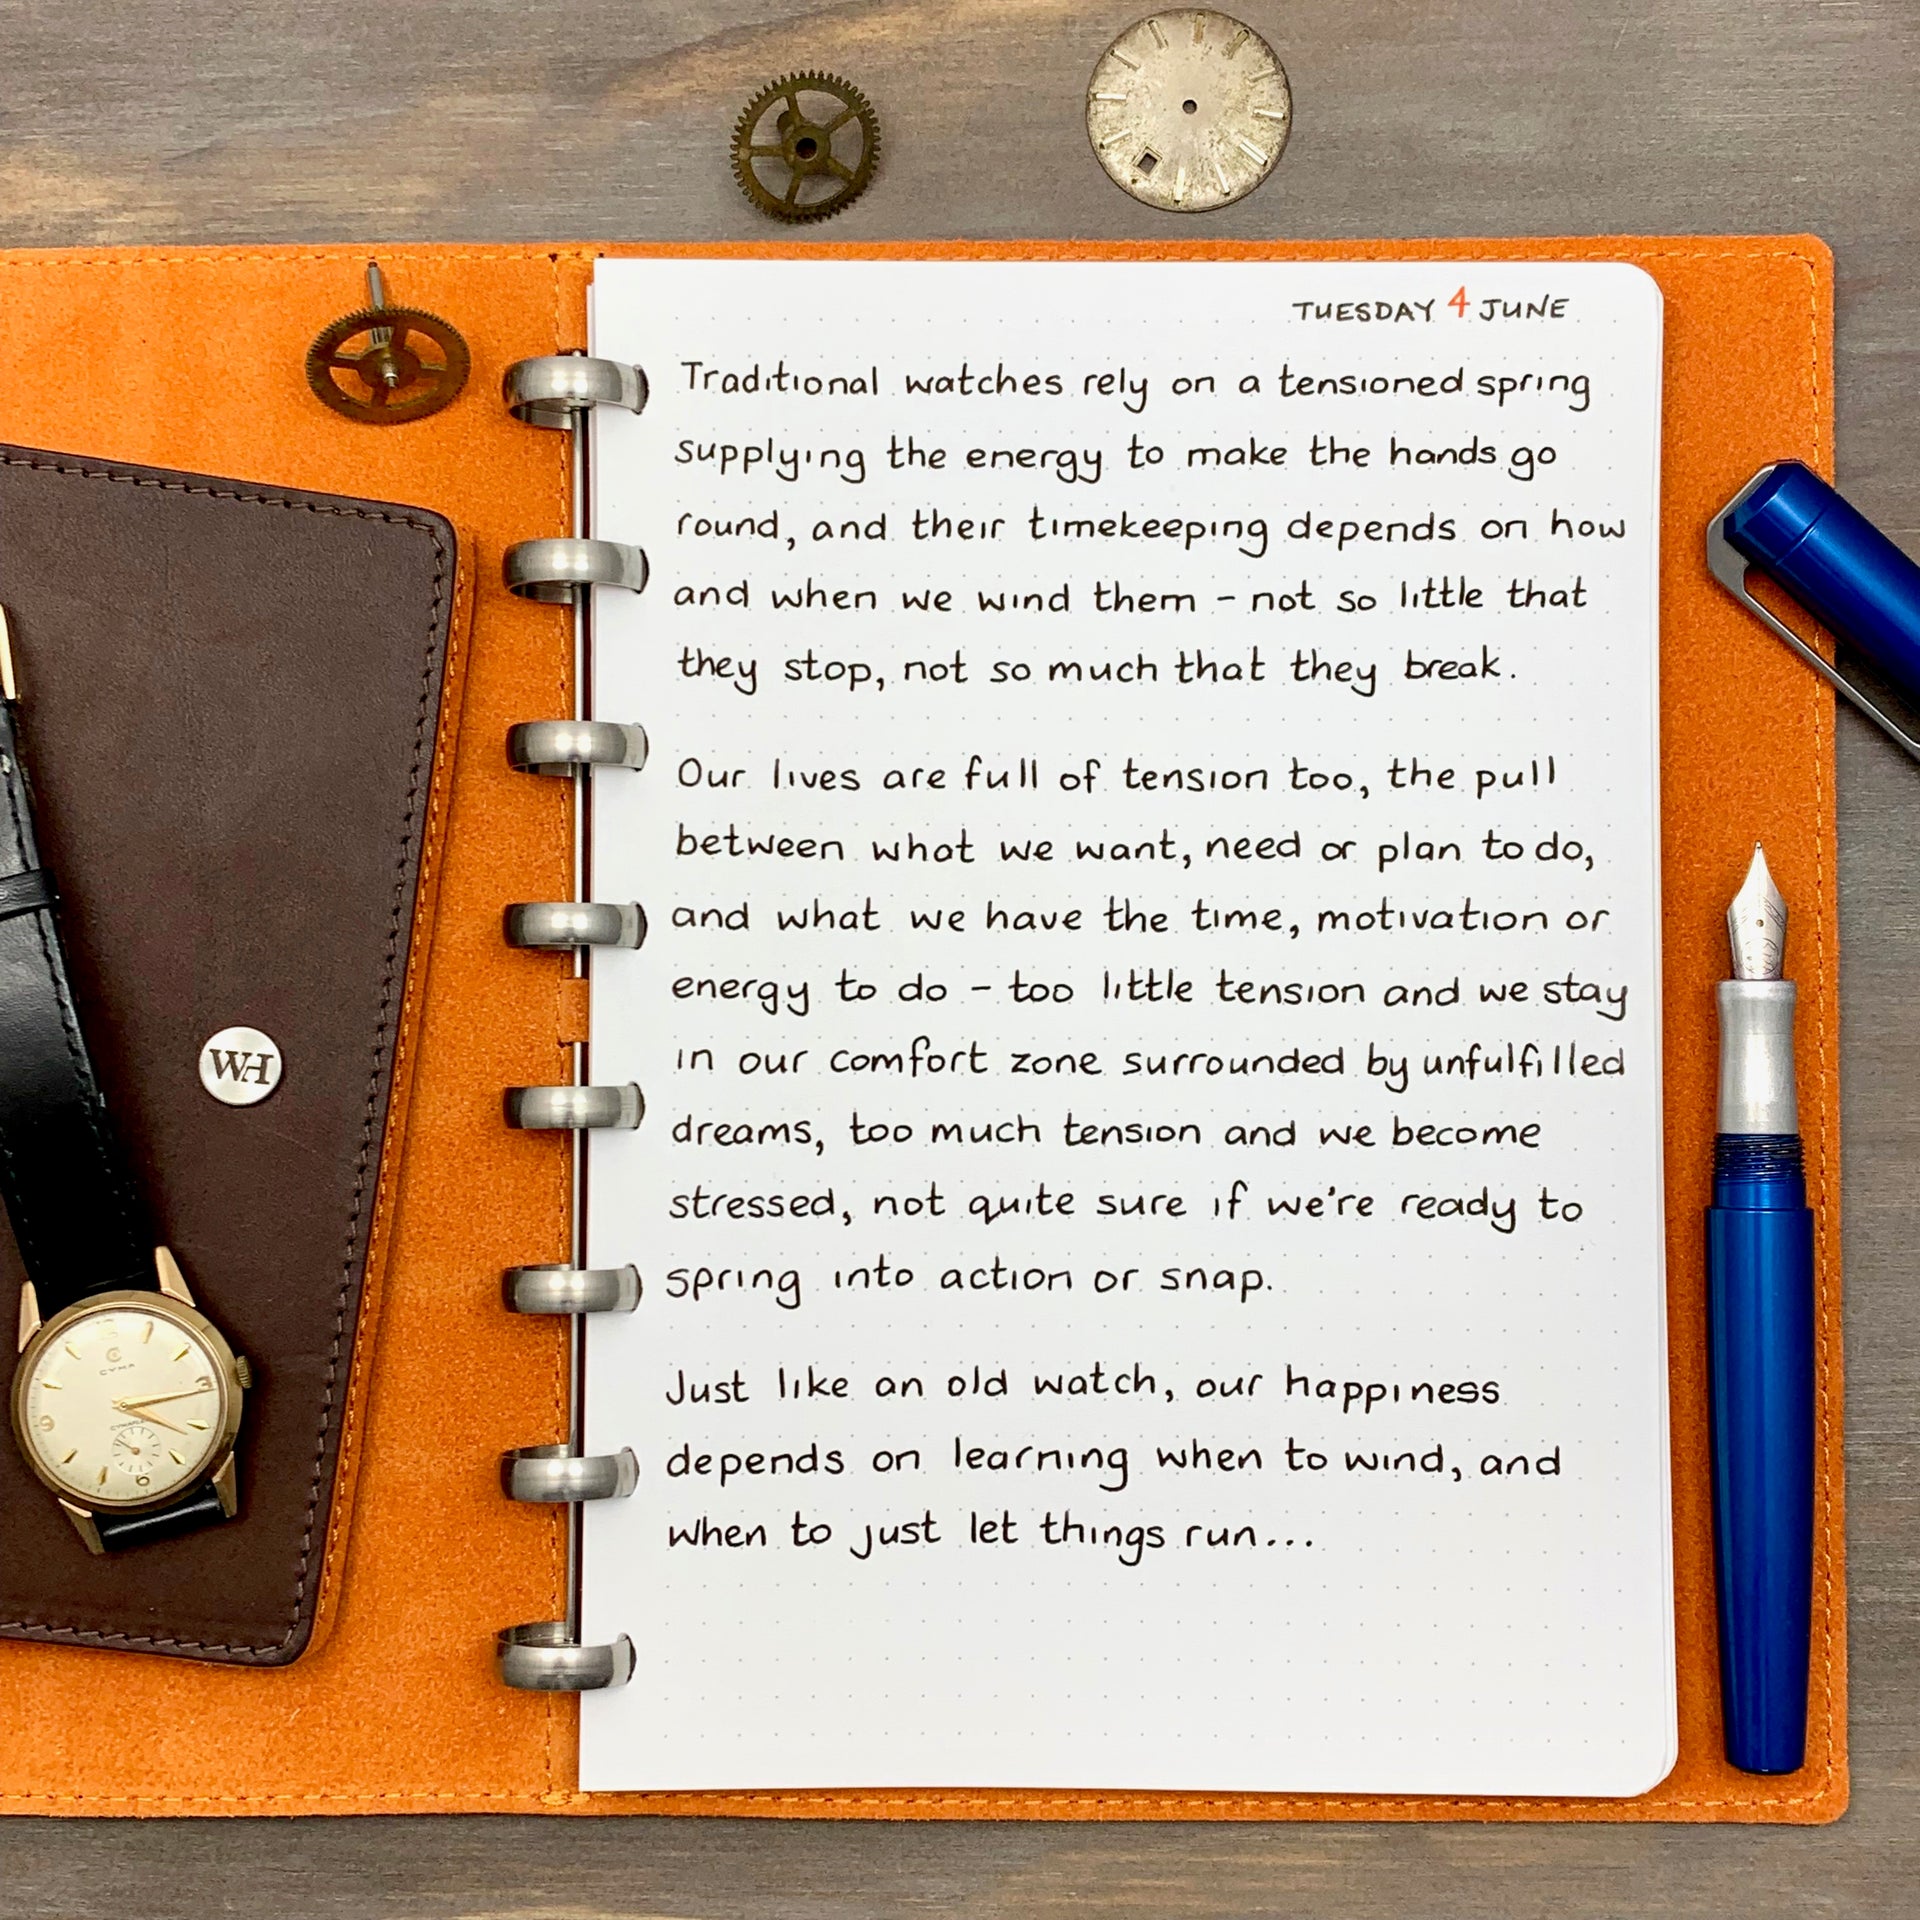 TUESDAY 4 JUNE
Traditional watches rely on a tensioned spring
supplying the energy to make the hands go
round, and their timekeeping depends on how
and when we wind them - not so little that
they stop, not so much that they break.
Our lives are full of tension too, the pull
between what we want, need or plan to do,
and what we have the time, motivation or
energy to do - too little tension and we stay
in our comfort zone surrounded by unfulfilled
dreams, too much tension and we become
stressed, not quite sure if we're ready to
spring into action or snap.
Just like an old watch, our happiness
depends on learning when to wind, and
when to just let things run...
WH
CYMA
3
6
9